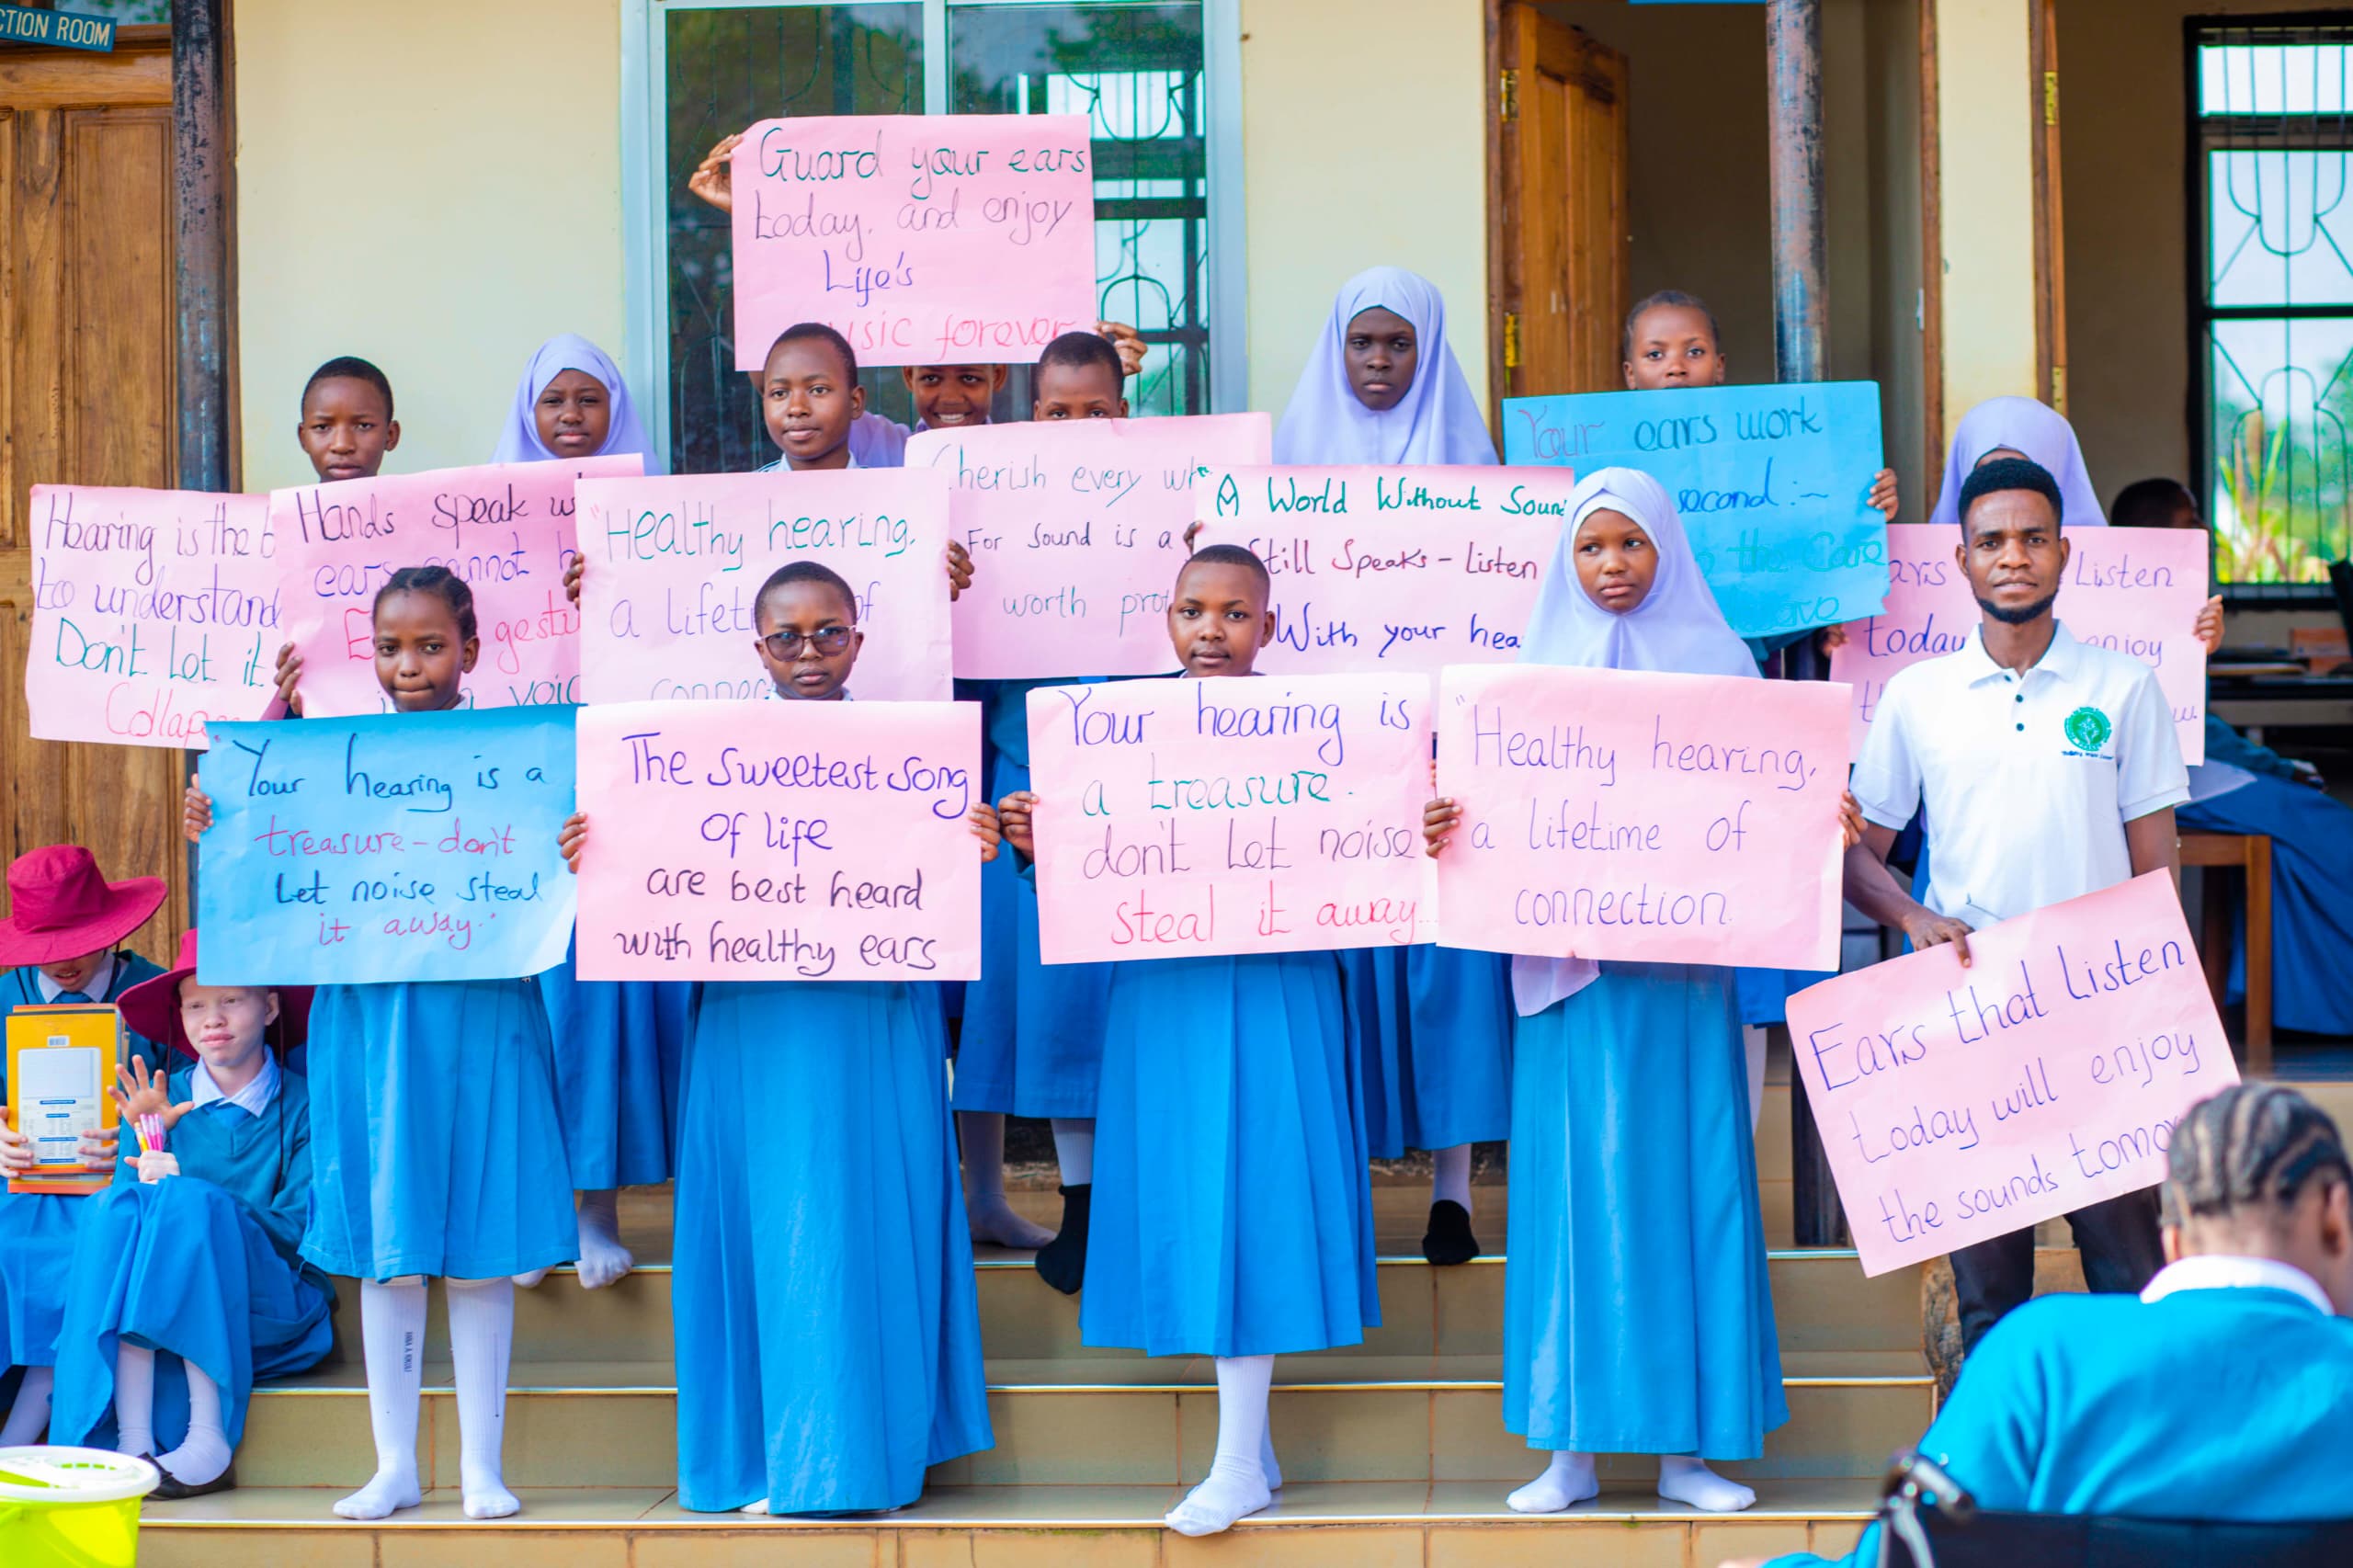 CTION ROOM
Guard your ears
today, and enjoy
Life's
usic forever
Hearing is the
to understand
Don't Let it
Collap
Hands speak
ears cannot
gestu
voic
"Healthy hearing,
a lifeti of
connec
Cherish every
For Sound is a
worth pro
A World Without Soun
Still Speaks - Listen
With your hea
Your ears work
second :~
the Care
ars Listen
today enjoy
"Your hearing is a
treasure - don't
Let noise steal
it away."
The sweetest song
of life
are best heard
with healthy ears
Your hearing is
a treasure.
don't Let noise
steal it away...
"Healthy hearing,
a lifetime of
connection.
Ears that Listen
today will enjoy
the sounds tomo